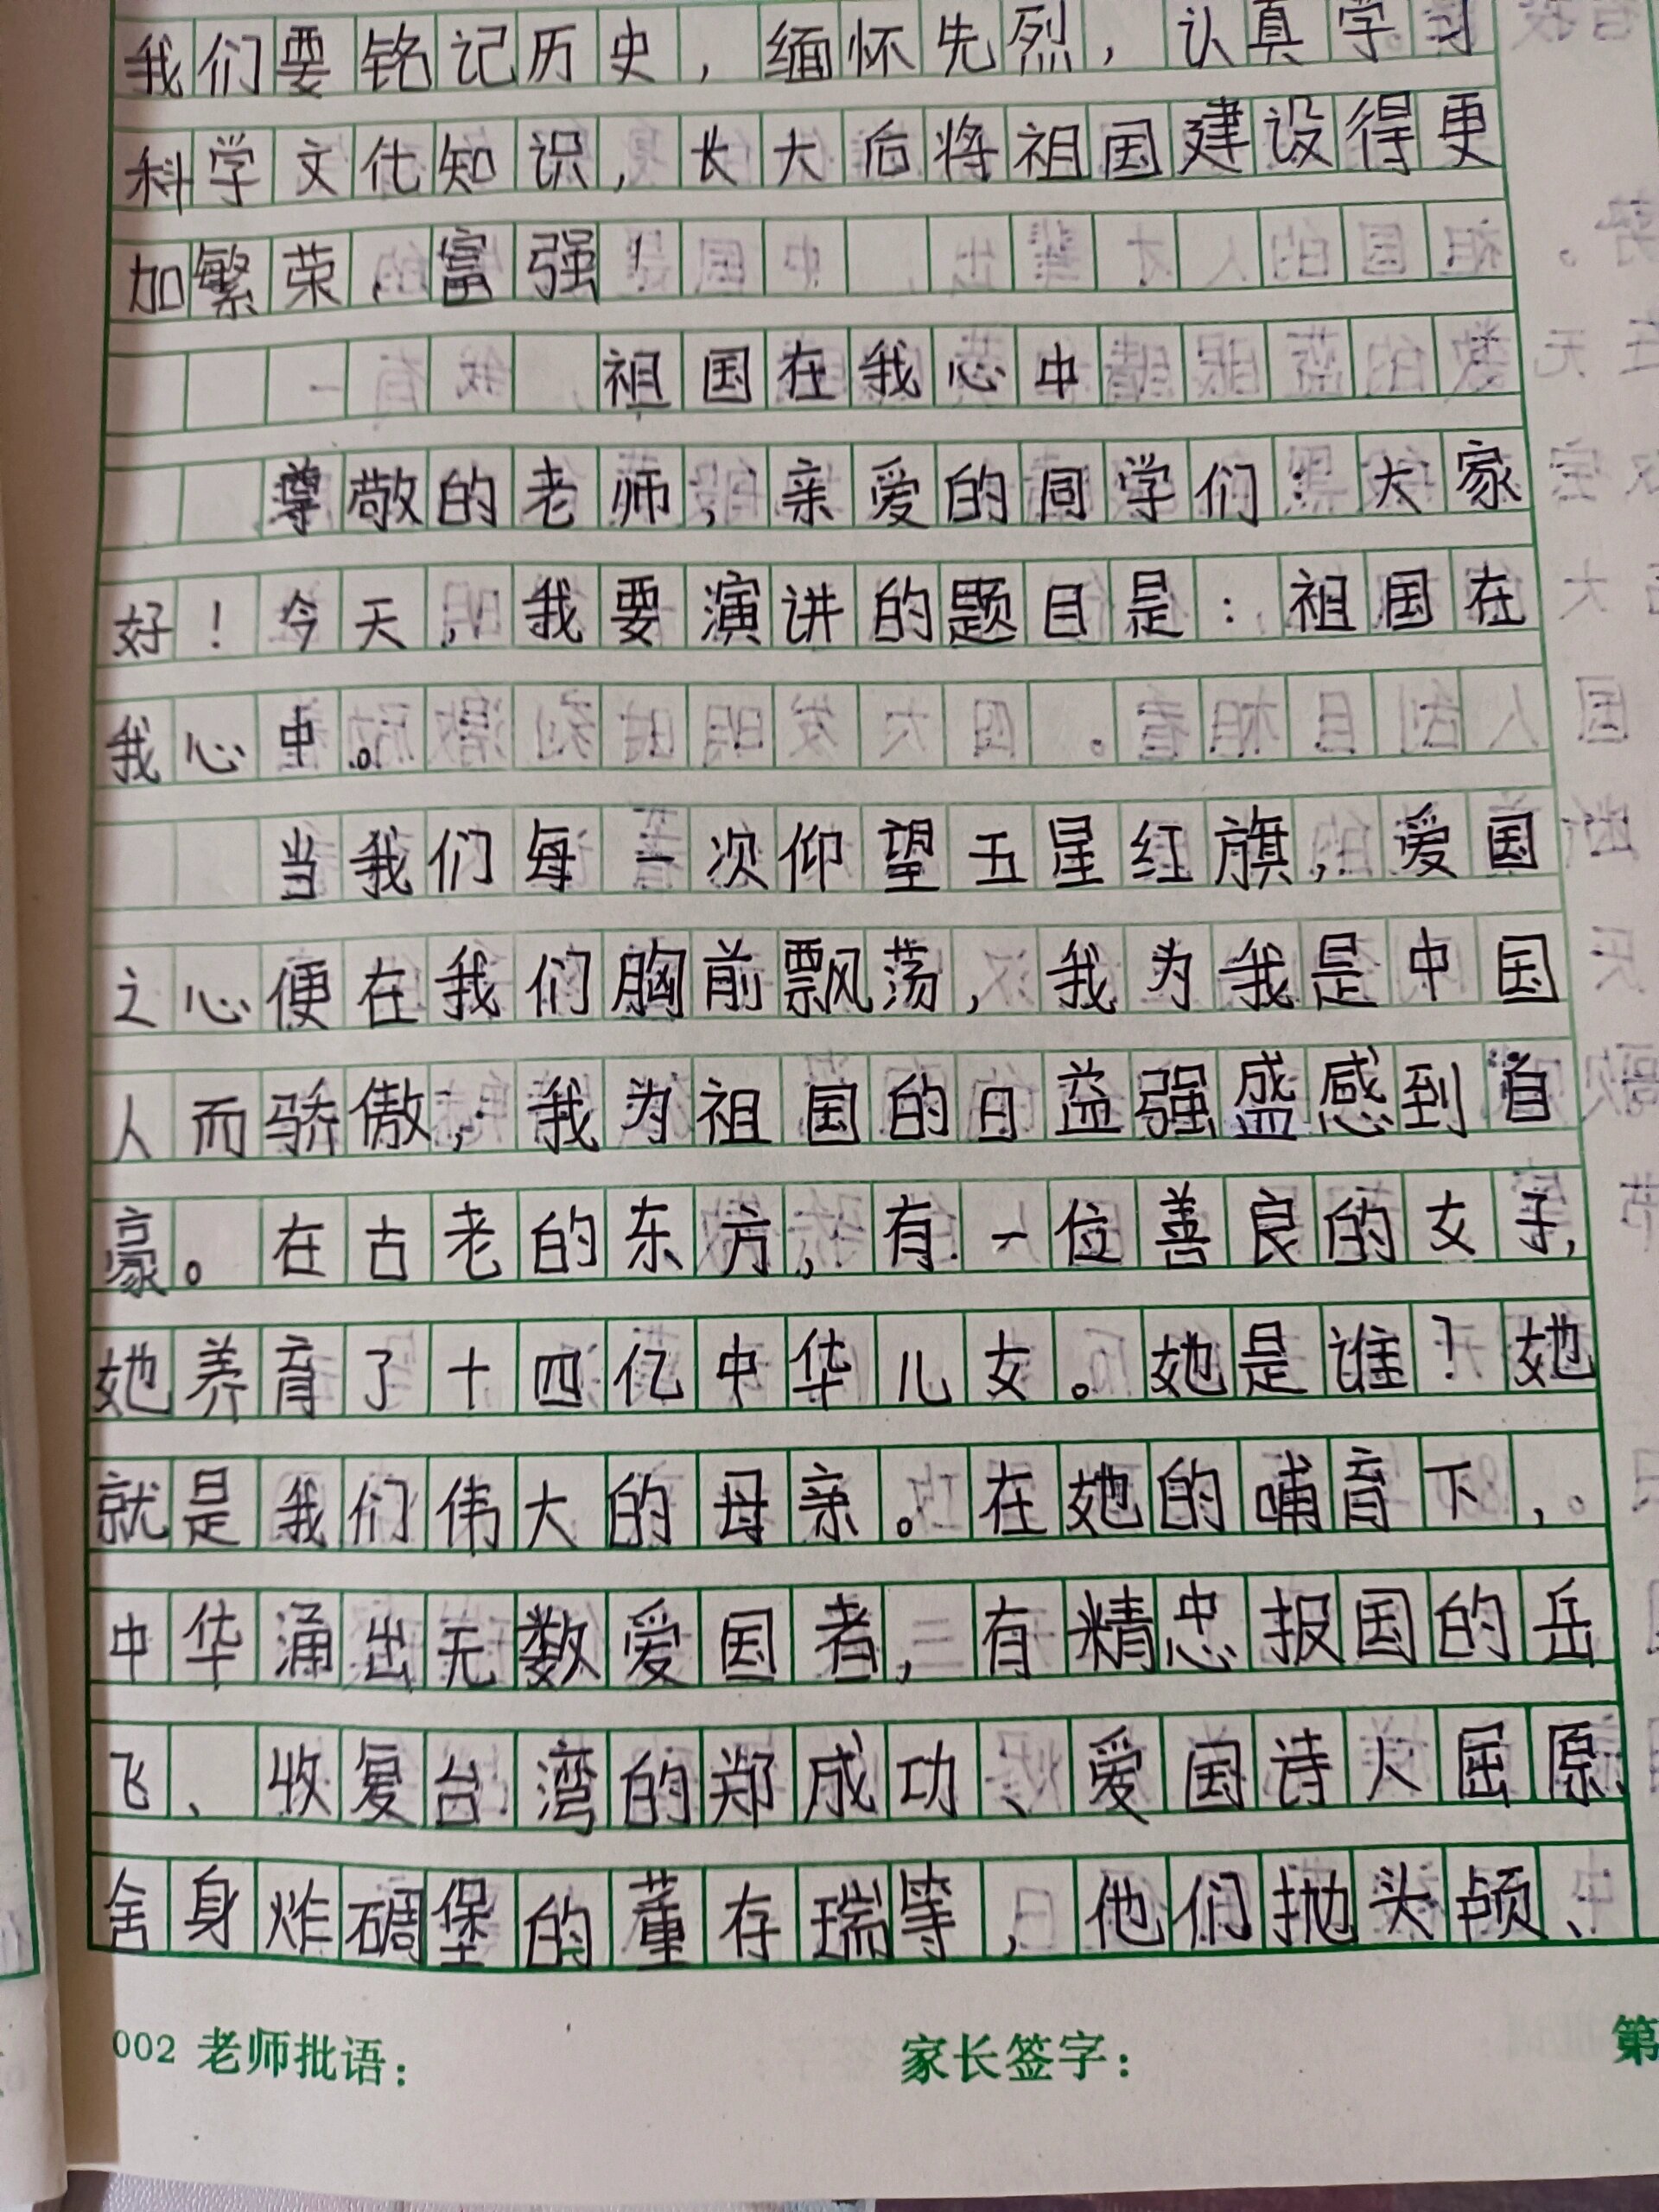 我们要铭记历史，缅怀先烈，认真学习
科学文化知识，长大后将祖国建设得更
加繁荣、富强！
祖国在我心中
尊敬的老师，亲爱的同学们：大家
好！今天，我要演讲的题目是：祖国在
我心中。
当我们每一次仰望五星红旗，爱国
之心便在我们胸前飘荡，我为我是中国
人而骄傲，我为祖国的日益强盛感到自
豪。在古老的东方，有一位善良的女子，
她养育了十四亿中华儿女。她是谁？她
就是我们伟大的母亲。在她的哺育下，
中华涌出无数爱国者，有精忠报国的岳
飞、收复台湾的郑成功、爱国诗人屈原、
舍身炸碉堡的董存瑞等，他们抛头颅、
002 老师批语：
家长签字：
第